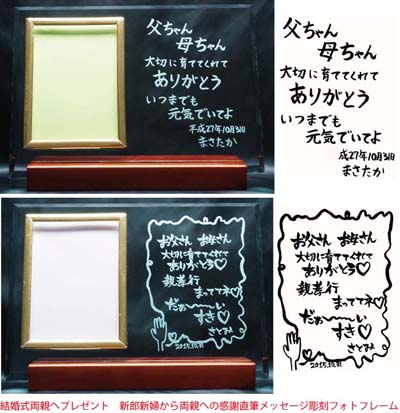 父ちゃん
母ちゃん
大切に育ててくれて
ありがとう
いつまでも
元気でいてよ
平成27年10月31日
まさたか
父ちゃん
母ちゃん
大切に育ててくれて
ありがとう
いつまでも
元気でいてよ
成27年10月31日
まさたか
お父さん お母さん
大切に育ててくれて
ありがとう♡
親孝行
まっててネ♡
だぁ〜〜〜い
すき♡
さとみ
2015.10.31
お父さん お母さん
大切に育ててくれて
ありがとう♡
親孝行
まっててネ♡
だぁ〜〜〜い
すき♡
さとみ
2015.10.31
結婚式両親へプレゼント 新郎新婦から両親への感謝直筆メッセージ彫刻フォトフレーム